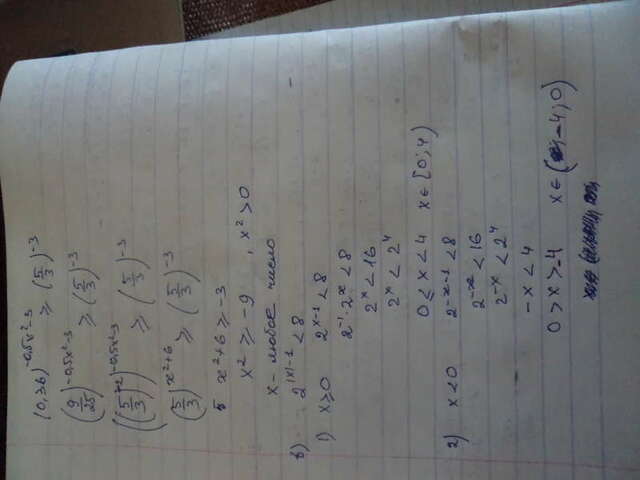 (0,36)^-0,5x²-3 ≥ (5/3)^-3
(9/25)^-0,5x²-3 ≥ (5/3)^-3
((5/3)^-2)^-0,5x²-3 ≥ (5/3)^-3
(5/3)^x²+6 ≥ (5/3)^-3
x²+6 ≥ -3
x² ≥ -9, x² > 0
x - любое число
в) 2^|x|-1 < 8
1) x ≥ 0 2^x-1 < 8
2^-1 · 2^x < 8
2^x < 16
2^x < 2^4
0 ≤ x < 4 x ∈ [0; 4)
2) x < 0 2^-x-1 < 8
2^-x < 16
2^-x < 2^4
-x < 4
0 > x > -4 x ∈ (-4; 0)